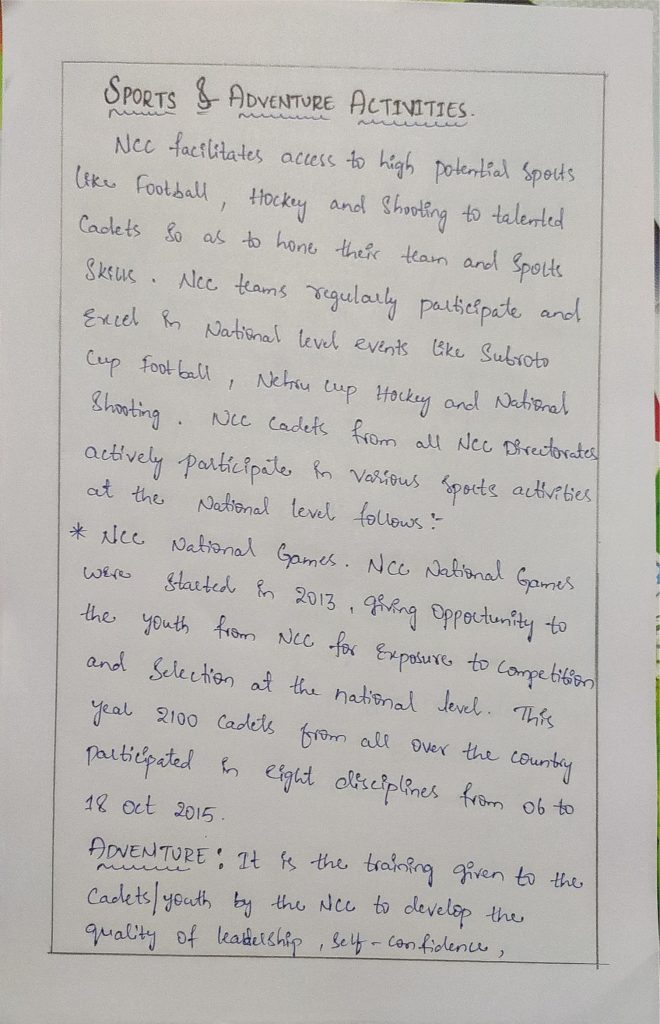 SPORTS & ADVENTURE ACTIVITIES.
NCC facilitates access to high potential sports
like Football, Hockey and Shooting to talented
Cadets so as to hone their team and Sports
Skills. NCC teams regularly participate and
Excel in National level events like Subroto
Cup Football, Nehru cup Hockey and National
Shooting. NCC Cadets from all NCC Directorates
actively participate in various sports activities
at the National level follows:-
* NCC National Games. NCC National Games
were started in 2013, giving Opportunity to
the youth from NCC for Exposure to Competition
and Selection at the national level. This
year 2100 Cadets from all over the country
participated in eight disciplines from 06 to
18 Oct 2015.
ADVENTURE: It is the training given to the
Cadets/youth by the NCC to develop the
quality of leadership, Self-confidence,